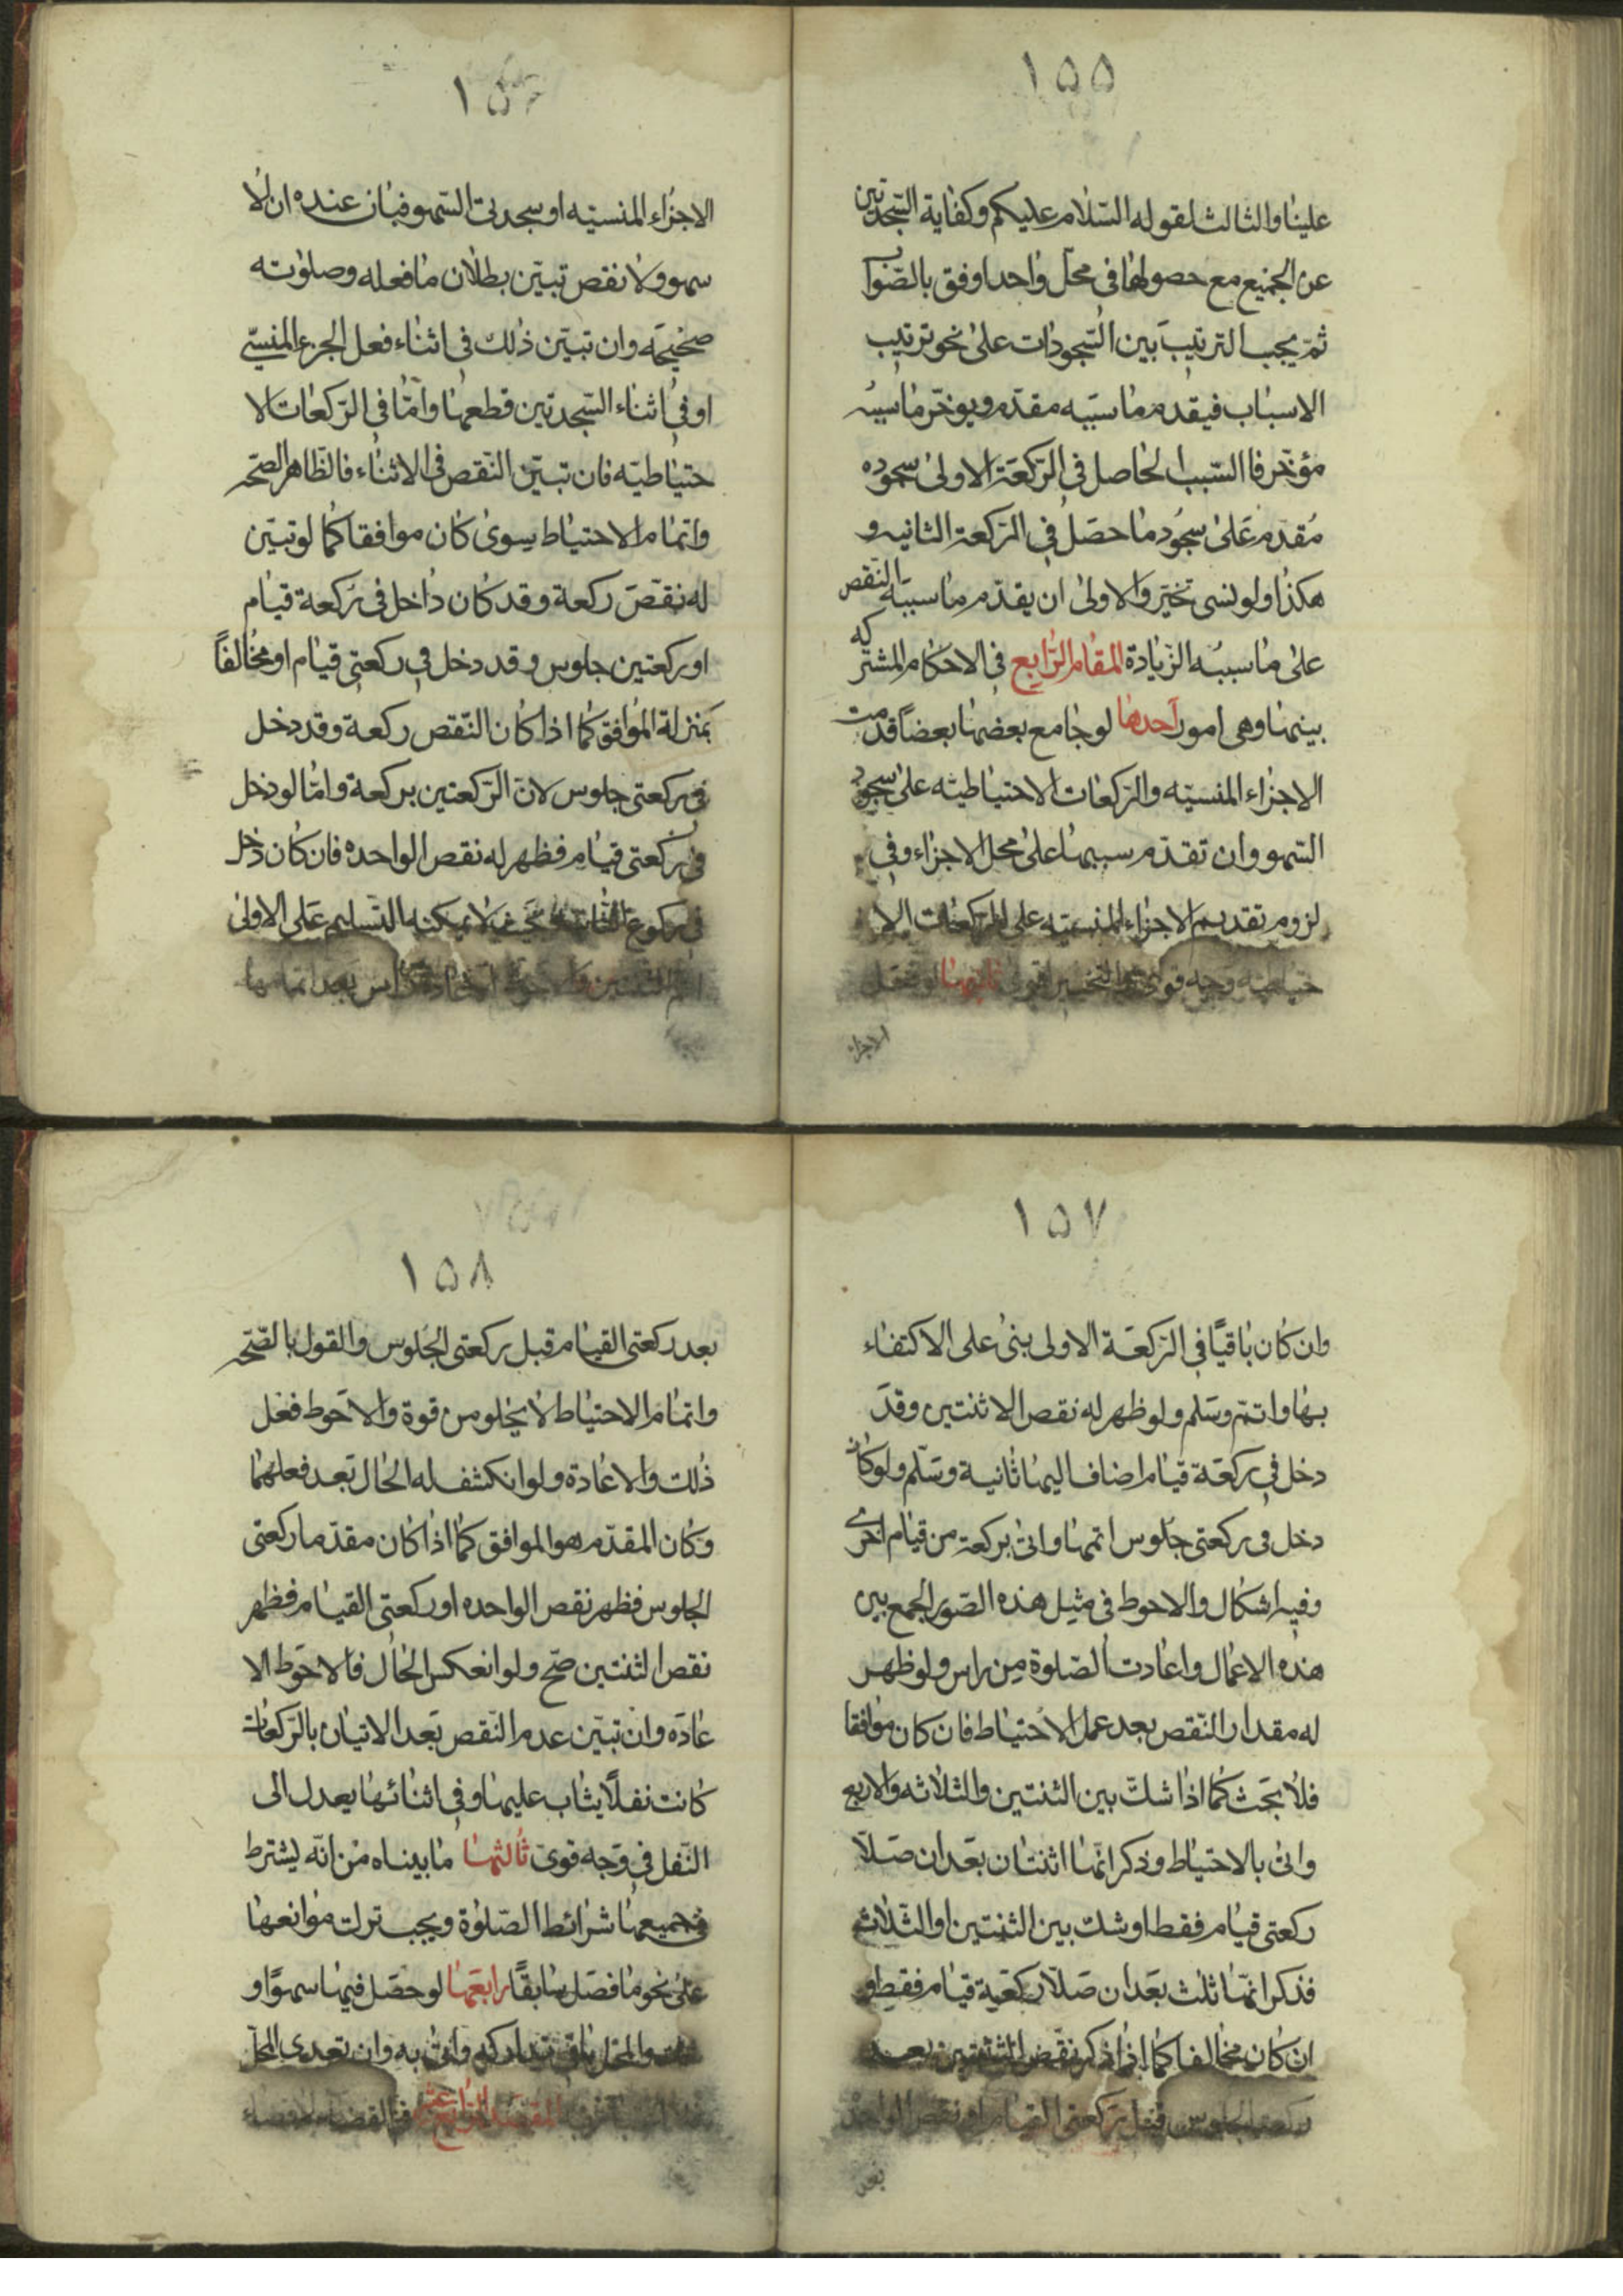 ١٥٥
علينا والثالث لقوله السّلام عليكم وكفاية السّجدتين
عن الجميع مع حصولها في محلّ واحد اوفق بالصّواب
ثمّ يجب الترتيب بين السّجودات على نحو ترتيب
الاسباب فيقدم ما سببه مقدّم ويوخّر ما سببه
مؤخّر فا السّبب الحاصل في الرّكعة الاولى سجوده
مُقدم على سجود ما حصل في الركعة الثانيه و
هكذا ولو نسى تخيّر والاولى ان يقدّم ما سببه النّقص
على ما سببه الزّيادة المقام الرّابع في الاحكام المشتركه
بينهما وهي امور احدها لو جامع بعضها بعضاً قدمت
الاجزاء المنسيّه والركعات الاحتياطيّه على سجود
السّهو وان تقدّم سببها على محل الاجزاء وفي
لزوم تقديم الاجزاء المنسيّه على الركعات الا
حتياطيّه وجه قوى ثانيها لو فعل
الاجزاء
١٥٦
الاجزاء المنسيّه او سجدتى السّهو فبان عنده ان لا
سهو ولا نقص تبيّن بطلان ما فعله وصلوته
صحيحه وان تبيّن ذلك في اثناء فعل الجزء المنسيّ
او في اثناء السّجدتين قطعها وامّا في الرّكعات الا
حتياطيّه فان تبيّن النّقص في الاثناء فالظّاهر الصحّه
واتمام الاحتياط سوى كان موافقا كما لو تبيّن
له نقص ركعة وقد كان داخل في ركعة قيام
او ركعتين جلوس وقد دخل في ركعتى قيام او مخالفاً
بمنزلة الموافق كما اذا كان النّقص ركعة وقد دخل
في ركعتى جلوس لانّ الرّكعتين بركعة وامّا لو دخل
في ركعتى قيام فظهر له نقص الواحده فان كان دخل
في ركوع الثانيه بحيث لا يمكنه التسليم على الاولى
بعد اتمامها
١٥٧
وان كان باقيًا في الرّكعة الاولى بنى على الاكتفاء
بها واتمّ وسَلم ولو ظهر له نقص الاثنتين وقد
دخل في ركعة قيام اضاف اليها ثانية وسَلّم ولو كان
دخل في ركعتى جلوس اتمها واتى بركعة من قيام اخرى
وفيه اشكال والاحوط في مثيل هذه الصّور الجمع بين
هذه الاعمال واعادت الصّلوة من راس ولو ظهر
له مقدار النّقص بعد عمل الاحتياط فان كان موافقا
فلا بحث كما اذا شكّ بين الثنتين والثلاثه والاربع
واتى بالاحتياط وذكر انّها اثنتان بعد ان صَلّا
ركعتى قيام فقط او شك بين الثنتين او الثّلاث
فذكر انّها ثلث بعد ان صَلّا ركعة قيام فقط و
ان كان مخالفا كما اذا ذكر نقص الثنتين بعد
ركعتى الجلوس قبل ركعتى القيام او نقص الواحد
بعد
١٥٨
بعد ركعتى القيام قبل ركعتى الجلوس والقول بالصّحّه
واتمام الاحتياط لا يخلو من قوة والاحوط فعل
ذلك والاعادة ولو انكشف له الحال بعد فعلهما
وكان المقدّم هو الموافق كما اذا كان مقدّما ركعتى
الجلوس فظهر نقص الواحده او ركعتى القيام فظهر
نقص الثنتين صحّ ولو انعكس الحال فالاحوط الا
عاده وان تبيّن عدم النّقص بعد الاتيان بالرّكعات
كانت نفلًا يثاب عليها وفي اثنائها يعدل الى
النّفل في وجه قوى ثالثها ما بيناه من انّه يشترط
في جميعها شرائط الصّلوة ويجب ترك موانعها
على نحو ما فصل سابقًا رابعها لو حصل فيها سهوًا و
والمحل باق تداركه واتى به وان تعدى المحلّ
المقصد الرّابع عشر في القضاء